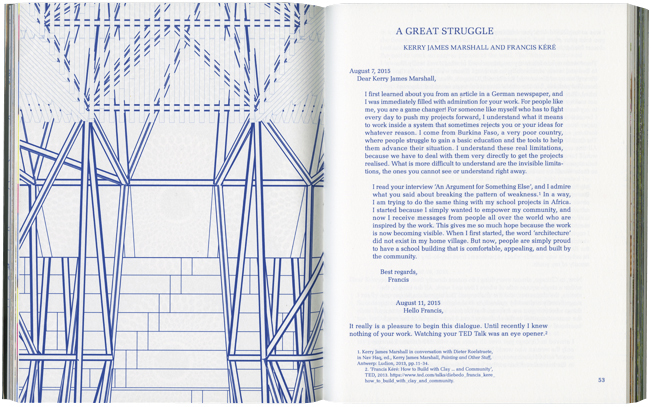 A GREAT STRUGGLE
KERRY JAMES MARSHALL AND FRANCIS KÉRÉ
August 7, 2015
Dear Kerry James Marshall,
I first learned about you from an article in a German newspaper, and
I was immediately filled with admiration for your work. For people like
me, you are a game changer! For someone like myself who has to fight
every day to push my projects forward, I understand what it means
to work inside a system that sometimes rejects you or your ideas for
whatever reason. I come from Burkina Faso, a very poor country,
where people struggle to gain a basic education and the tools to help
them advance their situation. I understand these real limitations,
because we have to deal with them very directly to get the projects
realised. What is more difficult to understand are the invisible limita-
tions, the ones you cannot see or understand right away.
I read your interview ‘An Argument for Something Else’, and I admire
what you said about breaking the pattern of weakness.¹ In a way,
I am trying to do the same thing with my school projects in Africa.
I started because I simply wanted to empower my community, and
now I receive messages from people all over the world who are
inspired by the work. This gives me so much hope because the work
is now becoming visible. When I first started, the word ‘architecture’
did not exist in my home village. But now, people are simply proud
to have a school building that is comfortable, appealing, and built by
the community.
Best regards,
Francis
August 11, 2015
Hello Francis,
It really is a pleasure to begin this dialogue. Until recently I knew
nothing of your work. Watching your TED Talk was an eye opener.²
1. Kerry James Marshall in conversation with Dieter Roelstraete,
in Nav Haq, ed., Kerry James Marshall, Painting and Other Stuff,
Antwerp: Ludion, 2013, pp.11-34.
2. ‘Francis Kéré: How to Build with Clay ... and Community’,
TED, 2013. https://www.ted.com/talks/diebedo_francis_kere_
how_to_build_with_clay_and_community.
53